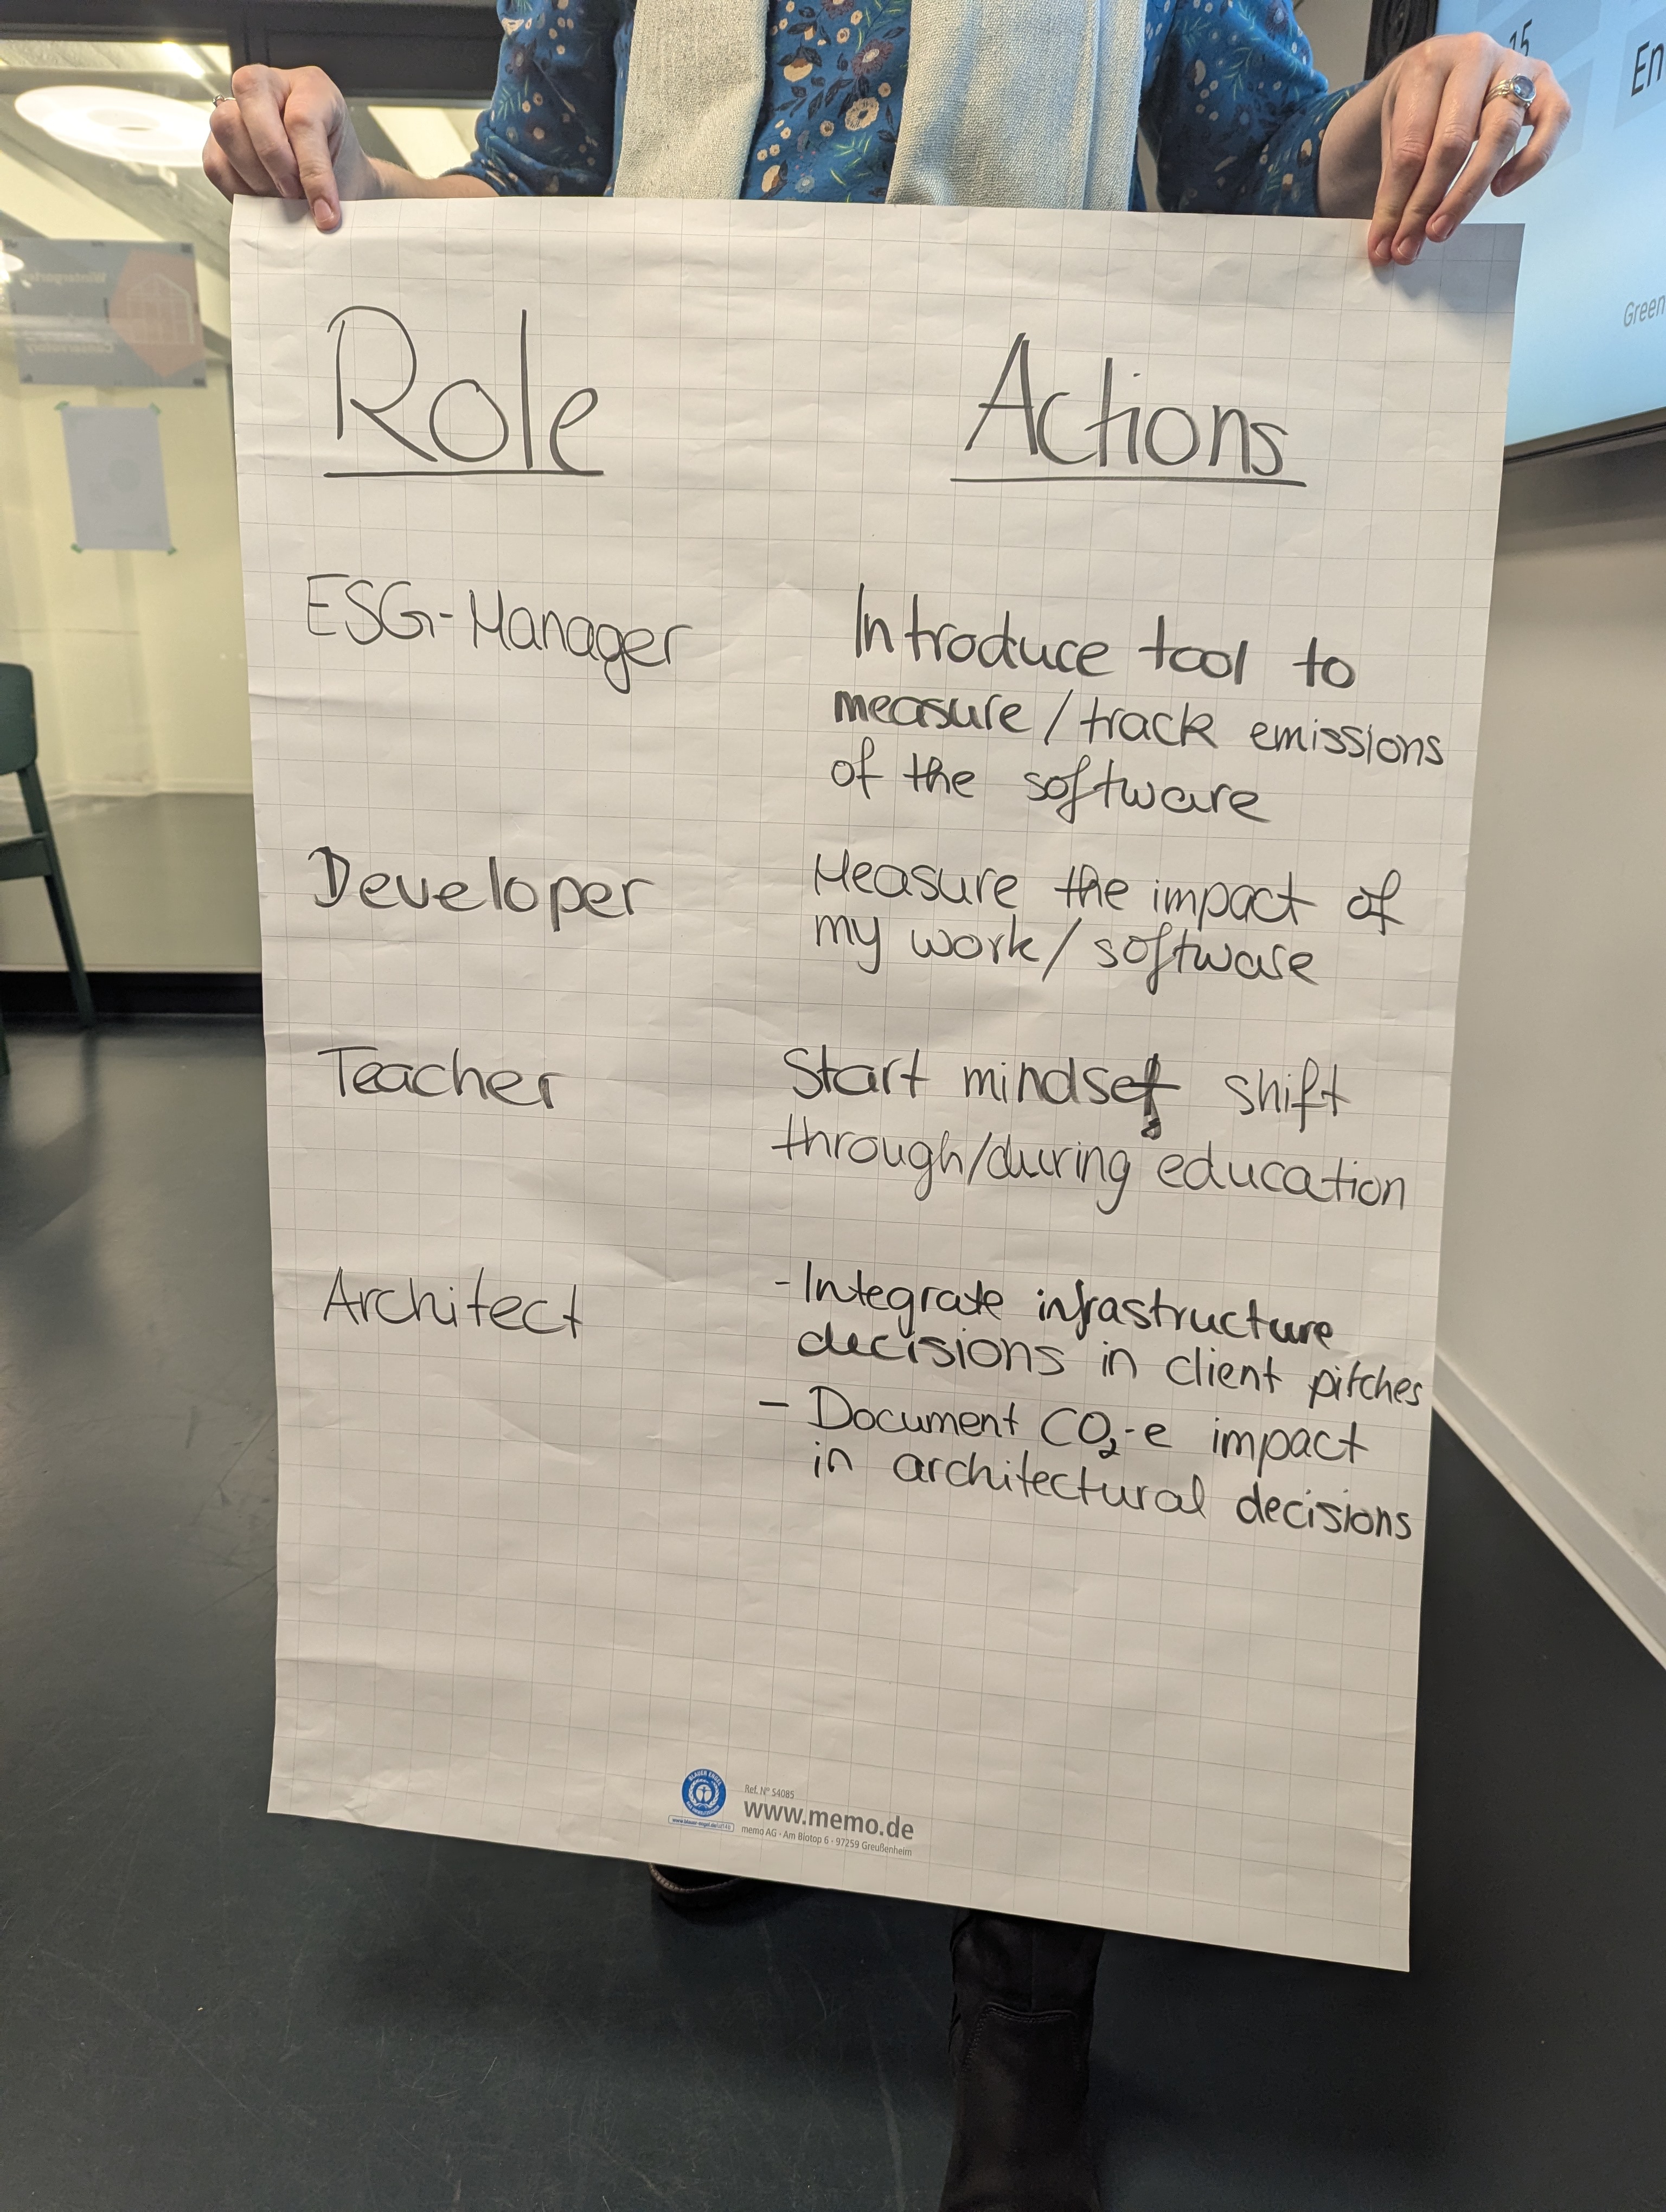 15
En
Green
Role
Actions
ESG-Manager
Introduce tool to
measure/track emissions
of the software
Developer
Measure the impact of
my work/software
Teacher
Start mindset shift
through/during education
Architect
- Integrate infrastructure
decisions in client pitches
- Document CO₂-e impact
in architectural decisions
BLAUER ENGEL
Ref. N° 54085
www.memo.de
memo AG · Am Biotop 6 · 97259 Greußenheim